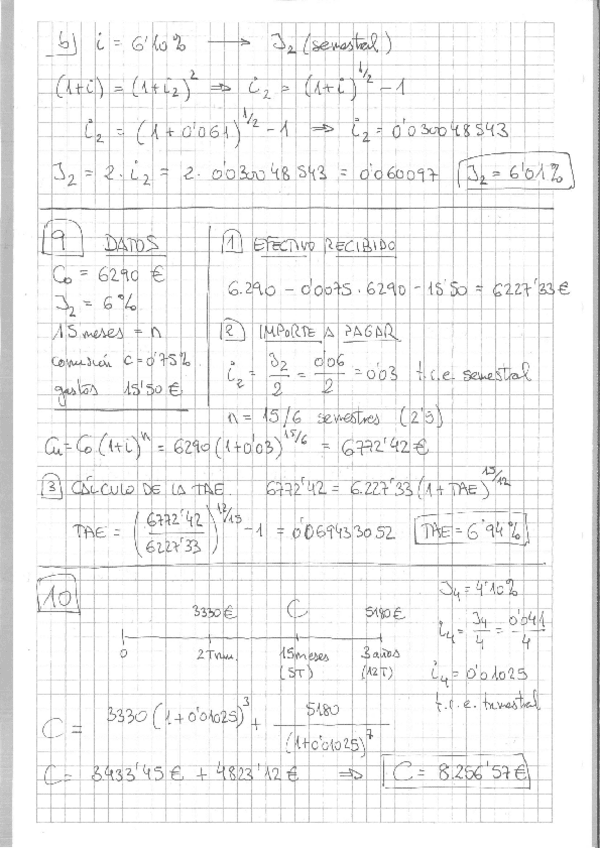 b) i = 6'10% → J₂ (semestral)
(1+i) = (1+i₂)² ⇒ i₂ = (1+i)^1/2 - 1
i₂ = (1+0'061)^1/2 - 1 ⇒ i₂ = 0'030048543
J₂ = 2·i₂ = 2·0'030048543 = 0'060097 J₂ = 6'01%
9 DATOS
C₀ = 6290 €
J₂ = 6%
15 meses = n
comisión c = 0'75%
gastos 15'50 €
1 EFECTIVO RECIBIDO
6.290 - 0'0075·6290 - 15'50 = 6227'33 €
2 IMPORTE A PAGAR
i₂ = J₂/2 = 0'06/2 = 0'03 t.c.e. semestral
n = 15/6 semestres (2'5)
Cn = C₀·(1+i)^n = 6290(1+0'03)^15/6 = 6772'42 €
3 CÁLCULO DE LA TAE 6772'42 = 6.227'33(1+TAE)^15/12
TAE = (6772'42/6227'33)^12/15 - 1 = 0'069433052 TAE = 6'94%
10
3330 € C 5180 €
0 2Trim. 15 meses (5T) 3 años (12T)
J₄ = 4'10%
i₄ = J₄/4 = 0'041/4
i₄ = 0'01025
t.c.e. trimestral
C = 3330(1+0'01025)³ + 5180/(1+0'01025)⁷
C = 3433'45 € + 4823'12 € ⇒ C = 8.256'57 €